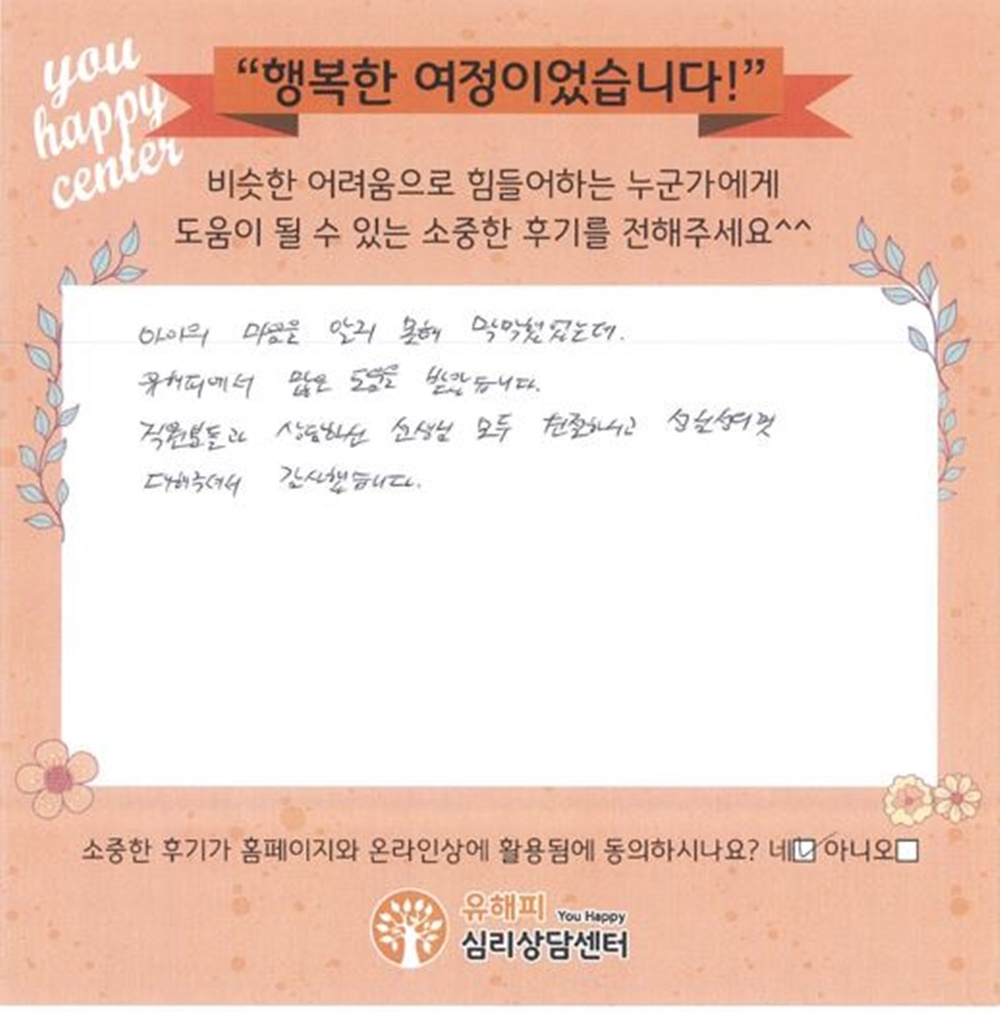 you
happy
center
“행복한 여정이었습니다!”
비슷한 어려움으로 힘들어하는 누군가에게
도움이 될 수 있는 소중한 후기를 전해주세요^^
아이의 마음을 알지 못해 막막했었는데.
유해피에서 많은 도움을 받았습니다.
직원분들과 상담하신 선생님 모두 친절하시고 성심성의껏
대해주셔서 감사했습니다.
소중한 후기가 홈페이지와 온라인상에 활용됨에 동의하시나요? 네☑ 아니오☐
유해피 You Happy
심리상담센터